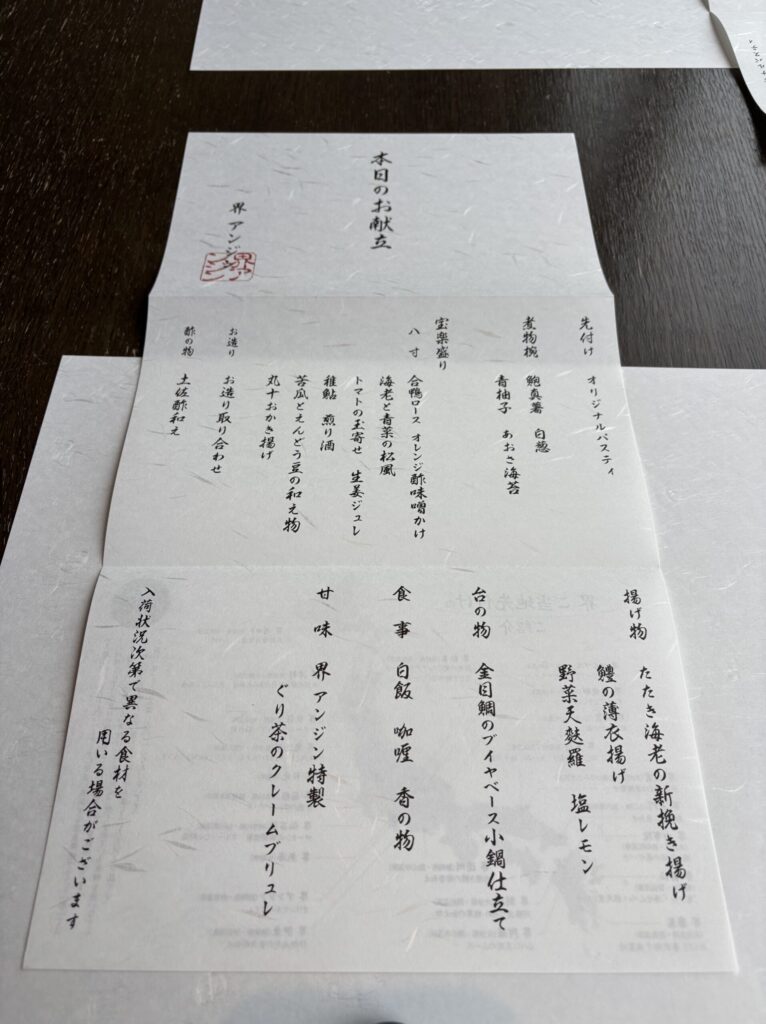 本日のお献立
界 アンジン
先付け オリジナルパスティ
煮物椀 鮑真薯 白葱
青柚子 あおさ海苔
宝楽盛り
八寸 合鴨ロース オレンジ酢味噌かけ
海老と青菜の松風
トマトの玉寄せ 生姜ジュレ
稚鮎 煎り酒
苦瓜とえんどう豆の和え物
丸十おかき揚げ
お造り お造り取り合わせ
酢の物 土佐酢和え
揚げ物 たたき海老の新挽き揚げ
鱧の薄衣揚げ
野菜天麩羅 塩レモン
台の物 金目鯛のブイヤベース小鍋仕立て
食事 白飯 咖喱 香の物
甘味 界アンジン特製
ぐり茶のクレームブリュレ
入荷状況次第で異なる食材を
用いる場合がございます